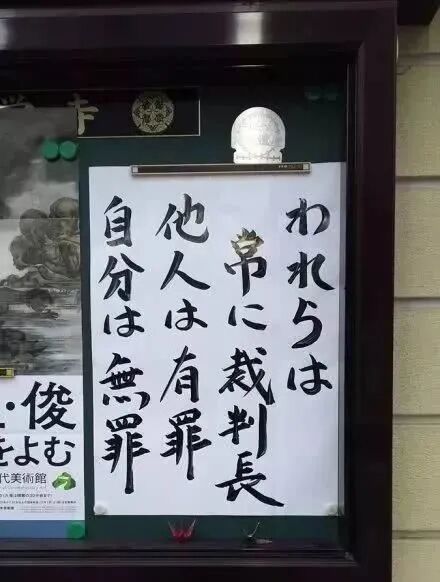 われらは
常に裁判長
他人は有罪
自分は無罪
・俊
をよむ
代美術館